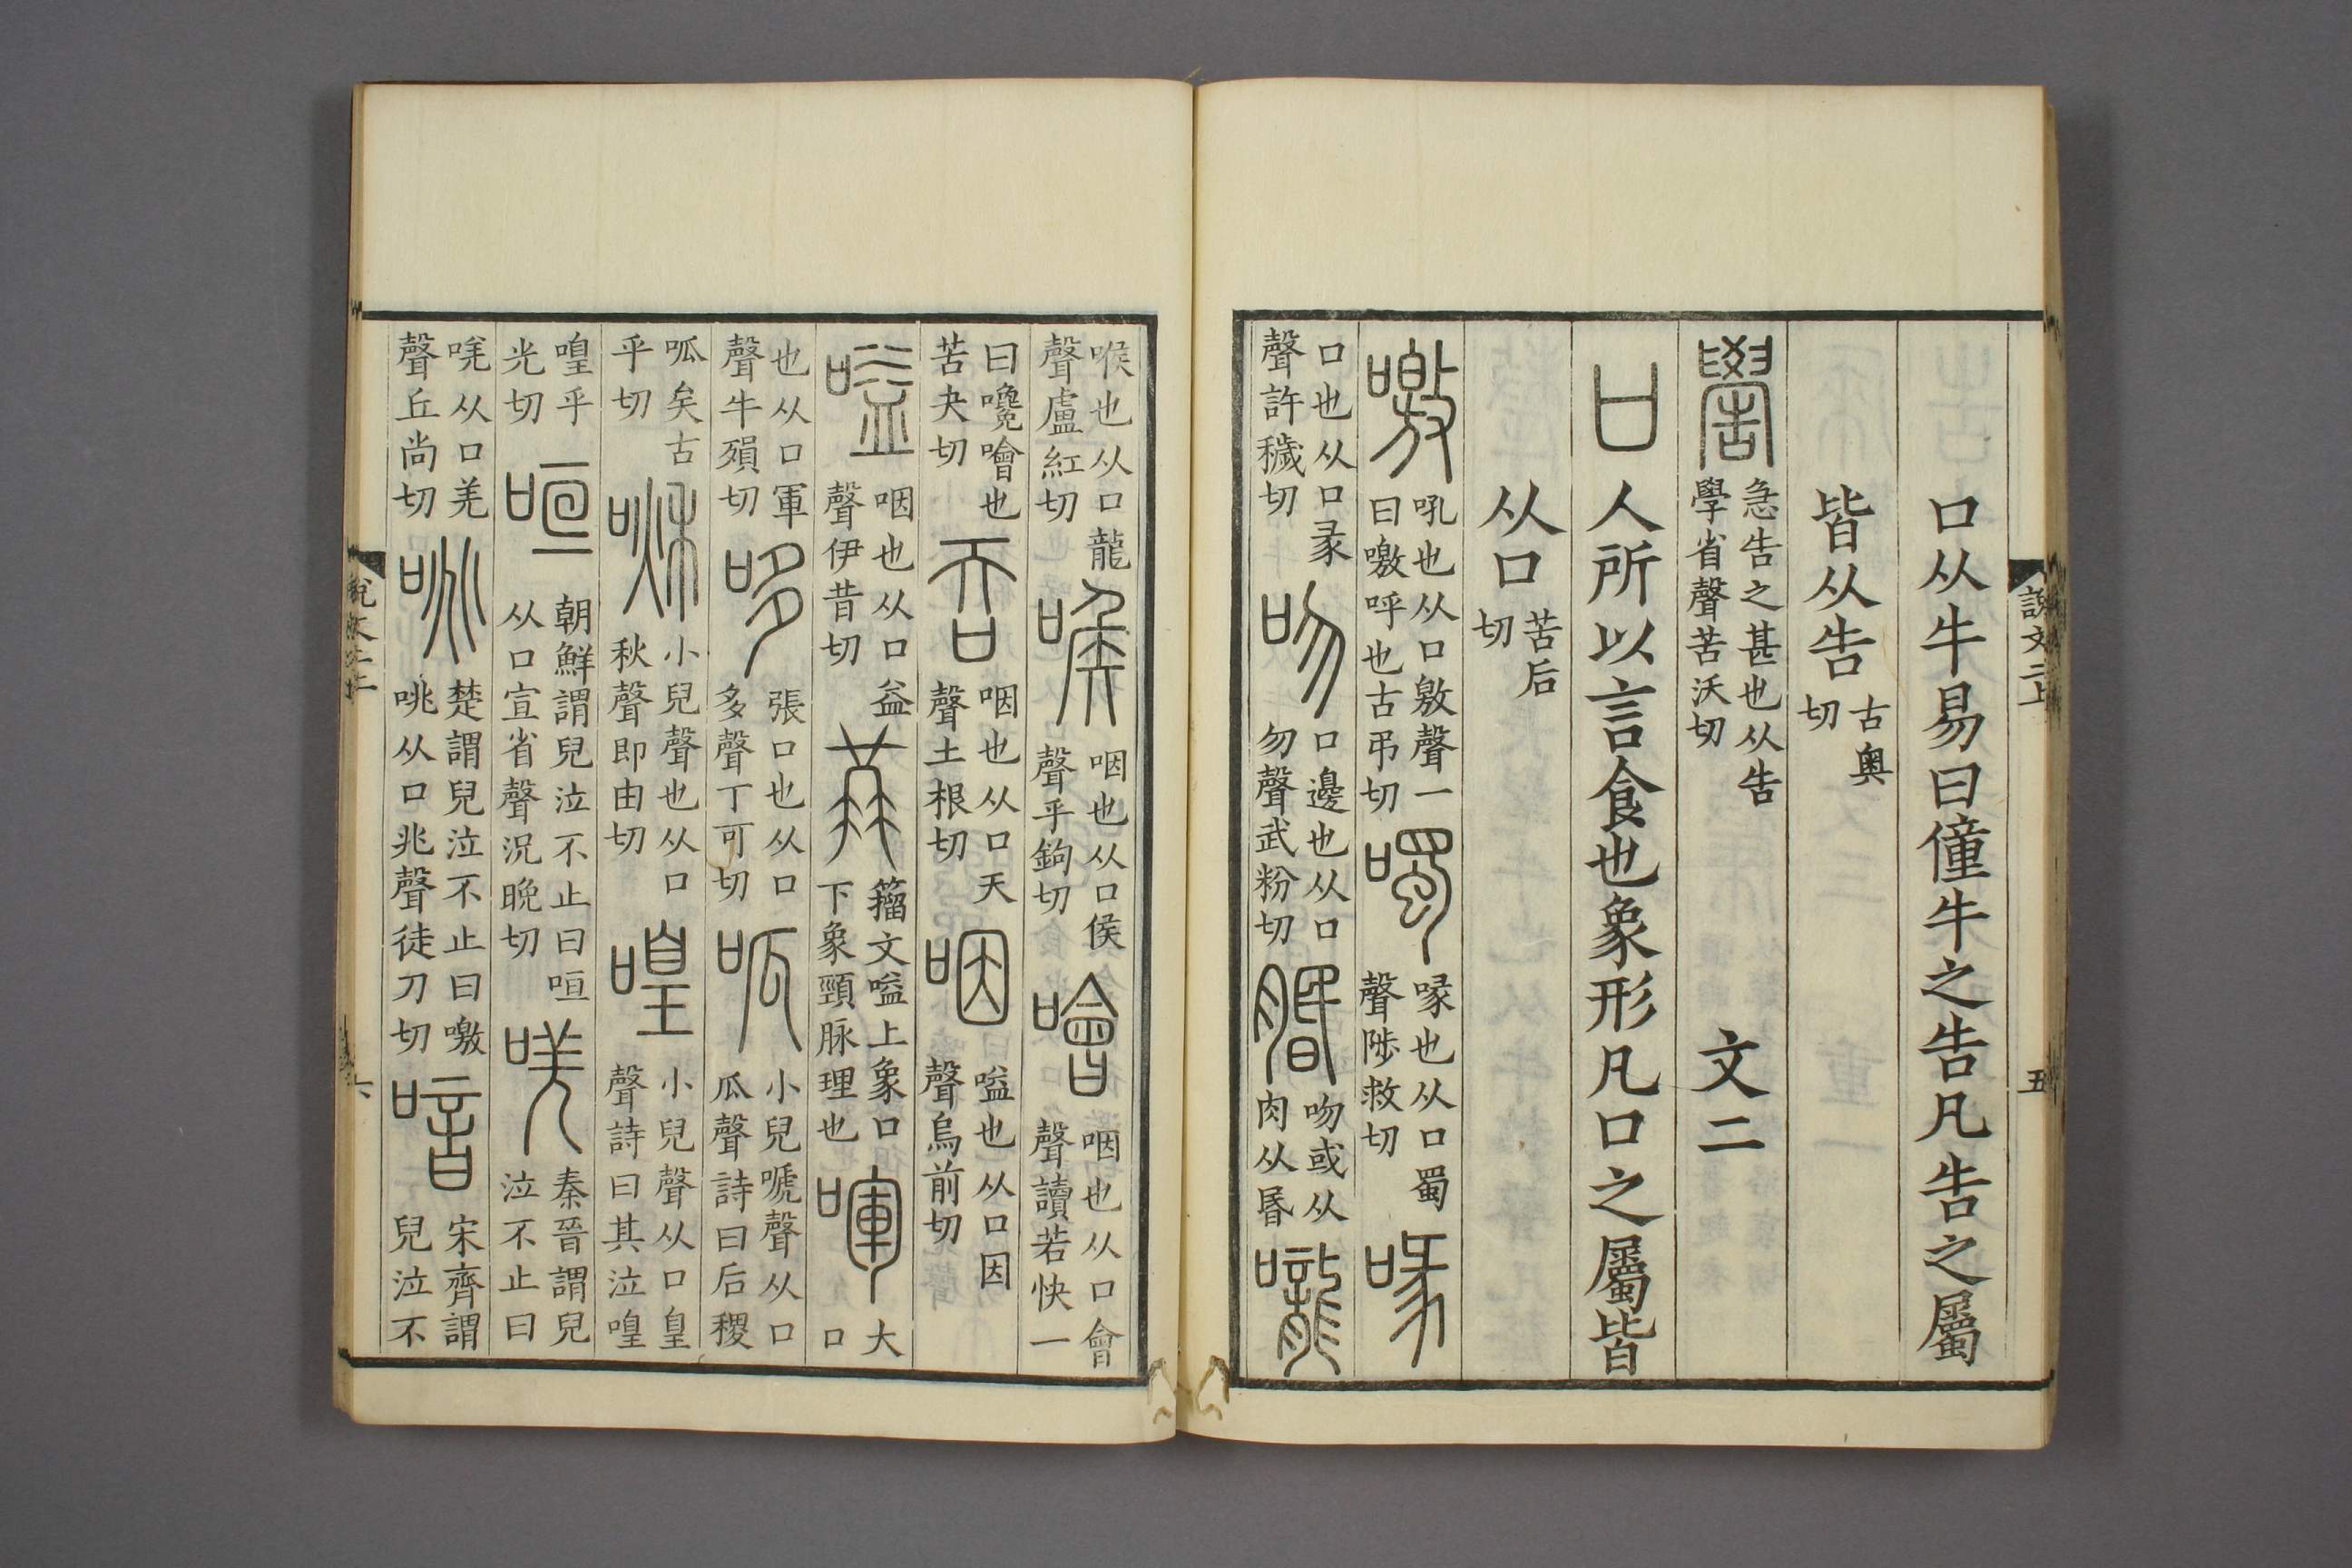 說文二上 五
口从牛易曰僮牛之告凡告之屬
皆从告 古奥切
嚳 急告之甚也从告學省聲苦沃切 文二
口 人所以言食也象形凡口之屬皆
从口 苦后切
噭 吼也从口敫聲一曰噭呼也古弔切 噣 喙也从口蜀聲陟救切 喙
口也从口彖聲許穢切 吻 口邊也从口勿聲武粉切 脗 吻或从肉从昬 嚨
喉也从口龍聲盧紅切 喉 咽也从口侯聲乎鉤切 噲 咽也从口會聲讀若快一
曰嚵噲也苦夬切 吞 咽也从口天聲土根切 咽 嗌也从口因聲烏前切
嗌 咽也从口益聲伊昔切 籀文嗌上象口下象頸脉理也 喗 大口
也从口軍聲牛殞切 哆 張口也从口多聲丁可切 呱 小兒嗁聲从口瓜聲詩曰后稷
呱矣古乎切 啾 小兒聲也从口秋聲即由切 喤 小兒聲从口皇聲詩曰其泣喤
喤乎光切 咺 朝鮮謂兒泣不止曰咺从口宣省聲況晚切 唴 秦晉謂兒泣不止曰
唴从口羌聲丘尚切 咷 楚謂兒泣不止曰噭咷从口兆聲徒刀切 喑 宋齊謂兒泣不
說文二上 六